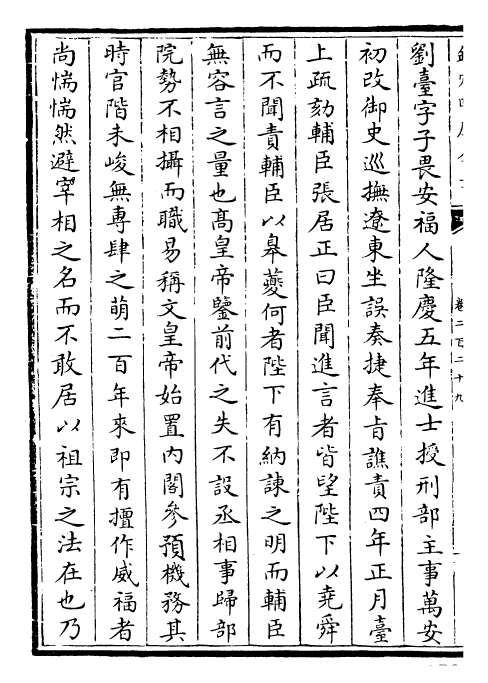 卷二百二十九
劉臺字子畏安福人隆慶五年進士授刑部主事萬安
初改御史巡撫遼東坐誤奏捷奉旨譙責四年正月臺
上疏劾輔臣張居正曰臣聞進言者皆望陛下以堯舜
而不聞責輔臣以皋夔何者陛下有納諫之明而輔臣
無容言之量也高皇帝鑒前代之失不設丞相事歸部
院勢不相攝而職易稱文皇帝始置內閣參預機務其
時官階未峻無專肆之萌二百年來即有擅作威福者
尚惴惴然避宰相之名而不敢居以祖宗之法在也乃